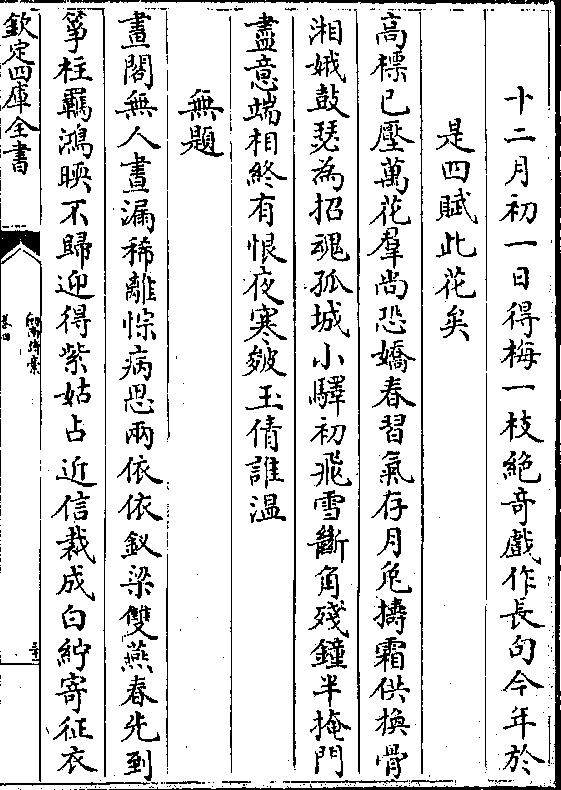 十二月初一日得梅一枝絶奇戲作長句今年於
是四賦此花矣
髙標已壓萬花羣尚恐嬌春習氣存月兎擣霜供換骨
湘娥鼓瑟為招魂孤城小驛初飛雪斷角殘鐘半掩門
盡意端相終有恨夜寒皴玉倩誰温
無題
畫閣無人晝漏稀離悰病思兩依依釵梁雙燕春先到
筝柱羈鴻暎不歸迎得紫姑占近信裁成白紵寄征衣
欽定四庫全書
卷四